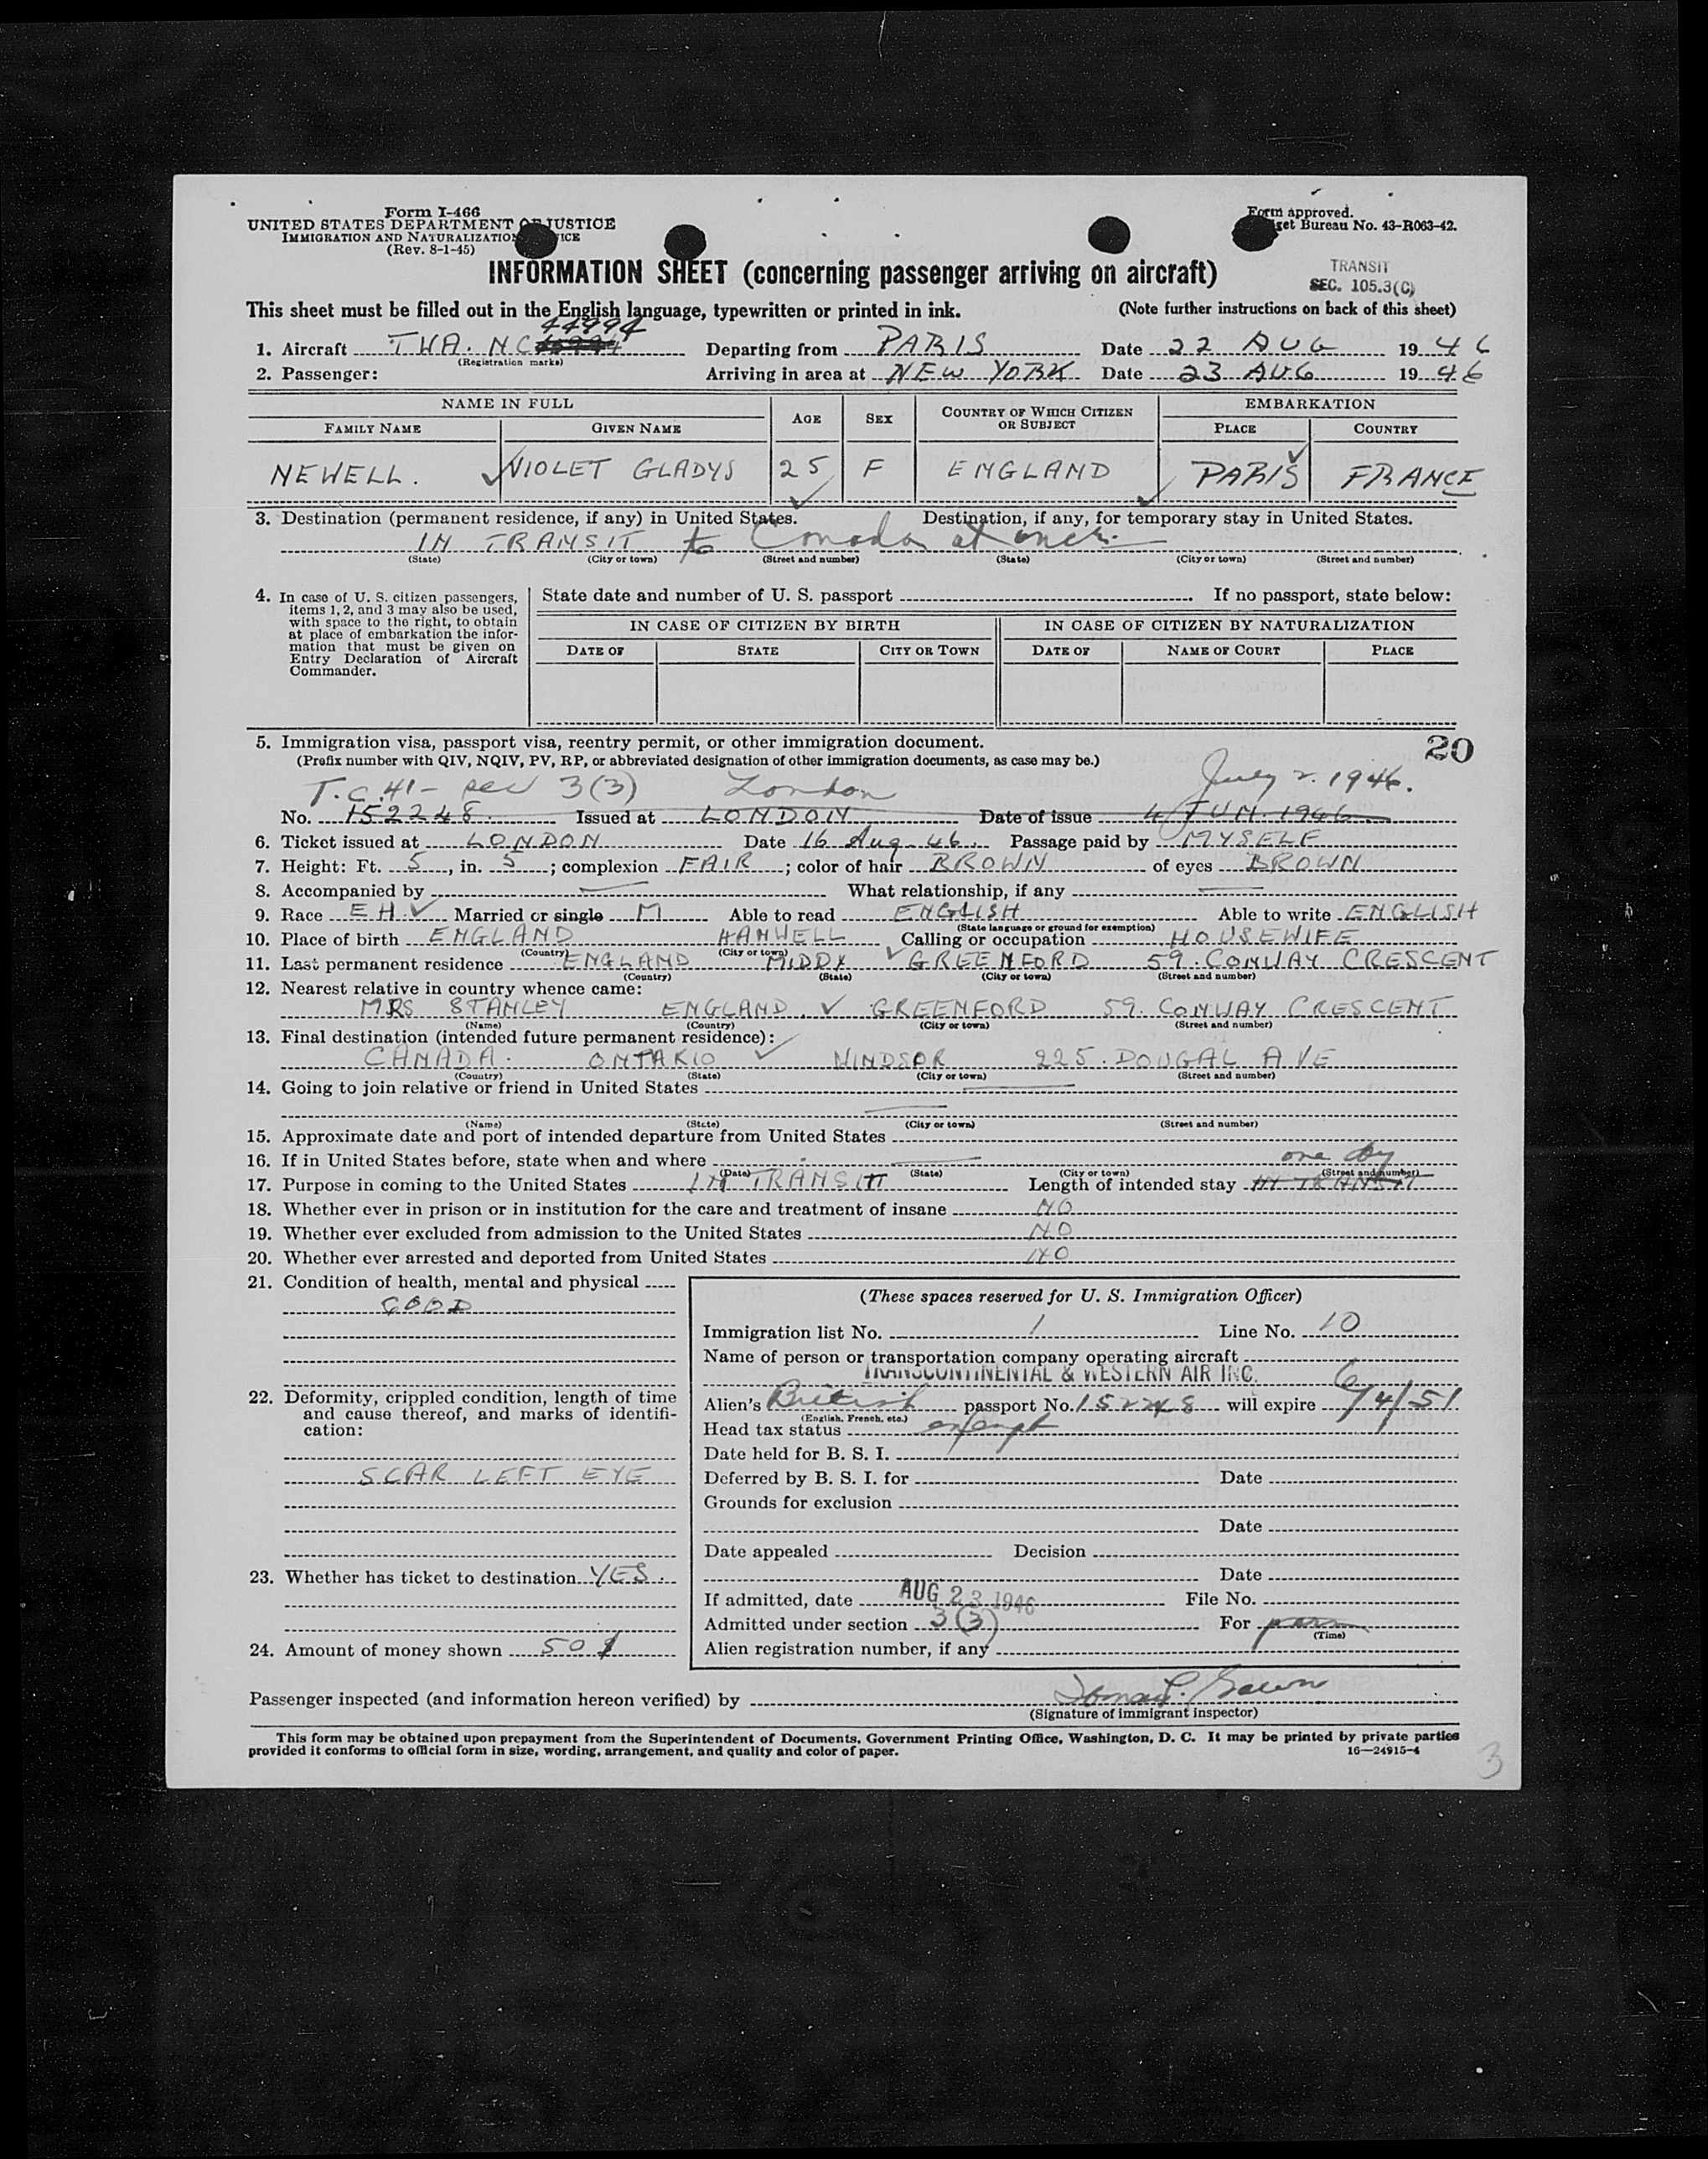 Form I-466
UNITED STATES DEPARTMENT OF JUSTICE
IMMIGRATION AND NATURALIZATION SERVICE
(Rev. 8-1-45)
Form approved.
Budget Bureau No. 43-R063-42.
INFORMATION SHEET (concerning passenger arriving on aircraft)
TRANSIT
SEC. 105.3(C)
This sheet must be filled out in the English language, typewritten or printed in ink. (Note further instructions on back of this sheet)
44994
1. Aircraft TWA. NC Departing from PARIS Date 22 AUG 1946
(Registration marks)
2. Passenger: Arriving in area at NEW YORK Date 23 AUG 1946
NAME IN FULL AGE SEX COUNTRY OF WHICH CITIZEN OR SUBJECT EMBARKATION
FAMILY NAME GIVEN NAME PLACE COUNTRY
NEWELL. VIOLET GLADYS 25 F ENGLAND PARIS FRANCE
3. Destination (permanent residence, if any) in United States. Destination, if any, for temporary stay in United States.
IN TRANSIT to Canada at once.
(State) (City or town) (Street and number) (State) (City or town) (Street and number)
4. In case of U. S. citizen passengers, items 1, 2, and 3 may also be used, with space to the right, to obtain at place of embarkation the information that must be given on Entry Declaration of Aircraft Commander.
State date and number of U. S. passport If no passport, state below:
IN CASE OF CITIZEN BY BIRTH IN CASE OF CITIZEN BY NATURALIZATION
DATE OF STATE CITY OR TOWN DATE OF NAME OF COURT PLACE
5. Immigration visa, passport visa, reentry permit, or other immigration document. 20
(Prefix number with QIV, NQIV, PV, RP, or abbreviated designation of other immigration documents, as case may be.)
T.C. 41 - sec 3(3) London July 2. 1946.
No. 152248. Issued at LONDON Date of issue 4 JUN. 1946
6. Ticket issued at LONDON Date 16 Aug. 46. Passage paid by MYSELF
7. Height: Ft. 5, in. 5; complexion FAIR; color of hair BROWN of eyes BROWN
8. Accompanied by — What relationship, if any —
9. Race EH. Married or single M Able to read ENGLISH Able to write ENGLISH
(State language or ground for exemption)
10. Place of birth ENGLAND HANWELL Calling or occupation HOUSEWIFE
(Country) (City or town)
11. Last permanent residence ENGLAND MIDDX GREENFORD 59. CONWAY CRESCENT
(Country) (State) (City or town) (Street and number)
12. Nearest relative in country whence came:
MRS STANLEY ENGLAND. GREENFORD 59. CONWAY CRESCENT
(Name) (Country) (City or town) (Street and number)
13. Final destination (intended future permanent residence):
CANADA. ONTARIO WINDSOR 225. DOUGAL AVE
(Country) (State) (City or town) (Street and number)
14. Going to join relative or friend in United States —
—
(Name) (State) (City or town) (Street and number)
15. Approximate date and port of intended departure from United States
16. If in United States before, state when and where — one day
(Date) (State) (City or town) (Street and number)
17. Purpose in coming to the United States IN TRANSIT Length of intended stay IN TRANSIT
18. Whether ever in prison or in institution for the care and treatment of insane NO
19. Whether ever excluded from admission to the United States NO
20. Whether ever arrested and deported from United States NO
21. Condition of health, mental and physical
GOOD
22. Deformity, crippled condition, length of time and cause thereof, and marks of identification:
SCAR LEFT EYE
23. Whether has ticket to destination YES.
24. Amount of money shown 50 $
(These spaces reserved for U. S. Immigration Officer)
Immigration list No. 1 Line No. 10
Name of person or transportation company operating aircraft
TRANSCONTINENTAL & WESTERN AIR INC.
Alien's British passport No. 152248 will expire 6/4/51
(English, French, etc.)
Head tax status exempt
Date held for B. S. I.
Deferred by B. S. I. for Date
Grounds for exclusion
Date
Date appealed Decision
Date
If admitted, date AUG 23 1946 File No.
Admitted under section 3(3) For
(Time)
Alien registration number, if any
Passenger inspected (and information hereon verified) by
(Signature of immigrant inspector)
This form may be obtained upon prepayment from the Superintendent of Documents, Government Printing Office, Washington, D. C. It may be printed by private parties
provided it conforms to official form in size, wording, arrangement, and quality and color of paper. 16—24915-4
3